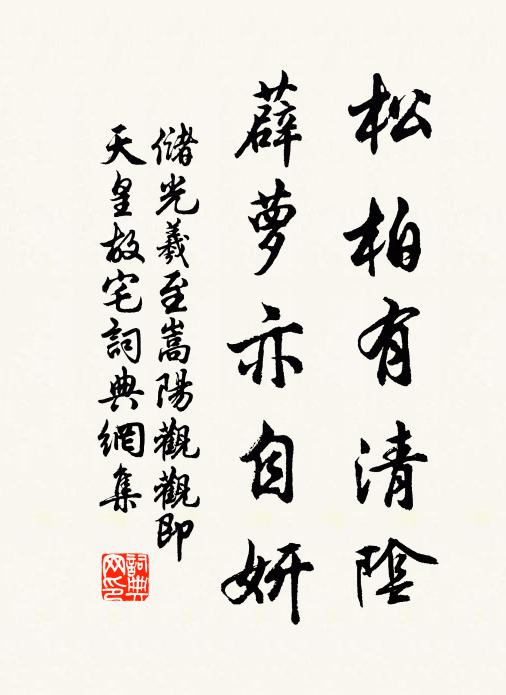 松柏有清陰
薜蘿亦自妍
儲光羲至嵩陽觀觀即
天皇故宅詞典網集
詞典
网印